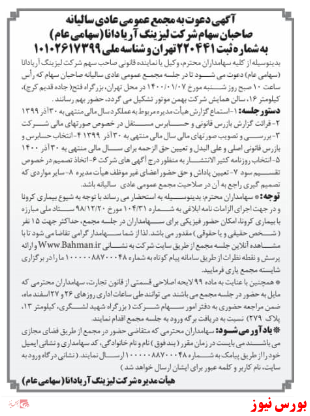 آگهی دعوت به مجمع عمومی عادی سالیانه
صاحبان سهام شرکت لیزینگ آریادانا (سهامی عام)
به شماره ثبت ۲۲۰۴۴۱ تهران و شناسه ملی ۱۰۱۰۲۶۱۷۳۹۹
بدینوسیله از کلیه سهامداران محترم، وکیل یا نماینده قانونی صاحب سهم شرکت لیزینگ آریادانا
(سهامی عام) دعوت می شود تا در جلسه مجمع عمومی عادی سالیانه صاحبان سهام که رأس
ساعت ۱۰ صبح روز شنبه مورخ ۱۴۰۰/۰۱/۰۷ در محل تهران، بزرگراه فتح (جاده قدیم کرج)،
کیلومتر ۱۶، سالن همایش شرکت بهمن موتور تشکیل می گردد، حضور بهم رسانند.
دستور جلسه: ۱- استماع گزارش هیأت مدیره مربوط به عملکرد سال مالی منتهی به ۳۰ آذر ۱۳۹۹
۲- قرائت گزارش بازرس قانونی و حسابرس مستقل در خصوص صورتهای مالی شرکت
۳- بررسی و تصویب صورتهای مالی سال مالی منتهی به ۳۰ آذر ۱۳۹۹ ۴- انتخاب حسابرس و
بازرس قانونی اصلی و علی البدل و تعیین حق الزحمه برای سال مالی منتهی به ۳۰ آذر ۱۴۰۰
۵- انتخاب روزنامه کثیر الانتشار به منظور درج آگهی های شرکت ۶- اتخاذ تصمیم در خصوص
تقسیم سود ۷- تعیین پاداش و حق حضور اعضای غیر موظف هیأت مدیره ۸- سایر مواردی که
تصمیم گیری راجع به آن در صلاحیت مجمع عمومی عادی سالیانه باشد.
توجه: سهامداران محترم؛ بدینوسیله به استحضار می رساند با توجه به شیوع بیماری کرونا
و در جهت اجرای الزامات نامه ابلاغی به شماره ۱۰۴/۳۱ مورخ ۹۸/۱۲/۲۰ ستاد ملی مبارزه
با بیماری کرونا، امکان حضور فیزیکی برای سهامداران در جلسه مجمع، حداکثر جهت ۱۵ نفر
(شخص حقیقی و یا حقوقی) مقدور می باشد. لذا از شما سهامدار گرامی تقاضا می شود تا با
مشاهده آنلاین جلسه مجمع از طریق سایت شرکت به نشانی Www.Bahman.ir و ارائه
پرسش و نقطه نظرات از طریق سامانه پیام کوتاه به شماره ۱۰۰۰۰۰۸۸۷۰۰۰۴۸ ما را در برگزاری
شایسته مجمع یاری فرمایید.
* همچنین با عنایت به ماده ۹۹ لایحه اصلاحی قسمتی از قانون تجارت، سهامداران محترمی که
مایل به حضور در جلسه مجمع می باشند می توانند طی ساعات اداری روزهای ۲۶ و ۲۷ اسفند ماه،
ضمن مراجعه حضوری به دفتر امور سهام شرکت (بزرگراه شهید لشگری، کیلومتر ۱۳،
پلاک ۲۷۹) نسبت به دریافت برگه ورود به جلسه مجمع اقدام نمایند.
* یادآور می شود: سهامداران محترمی که متقاضی حضور در مجمع از طریق فضای مجازی
می باشند می بایست در زمان مقرر (بند فوق) نام و نام خانوادگی، کد سهامداری و نشانی ایمیل
خود را از طریق پیامک به شماره ۱۰۰۰۰۰۸۸۷۰۰۰۴۸ ارسال نمایند. (نشانی درگاه ورود به
سایت، نام کاربر و کلمه عبور برای ایشان ارسال خواهد شد)
هیأت مدیره شرکت لیزینگ آریادانا (سهامی عام)
بورس نیوز